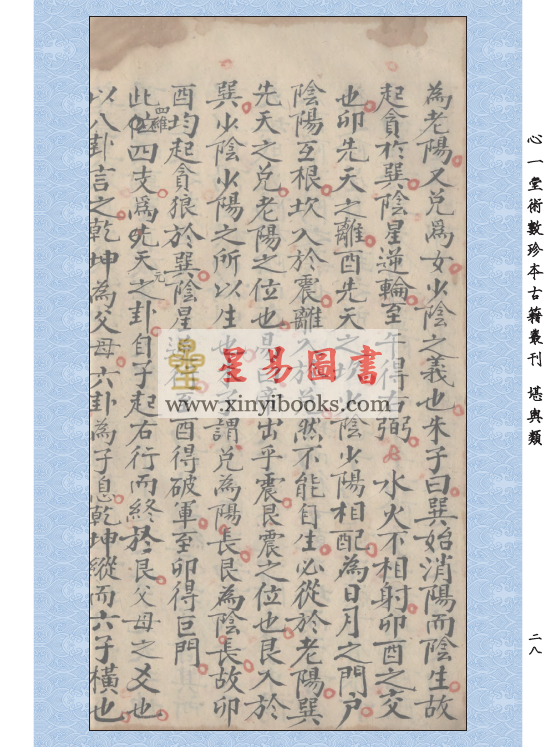 為老陽又兌爲女少陰之義也朱子曰巽始消陽而陰生故
起貪於巽陰星逆輪至午得右弼 水火不相射卯酉之交
也卯先天之離酉先天之坎少陰少陽相配為日月之門户
陰陽互根坎入於震離入於兌然不能自生必從於老陽巽
先天之兌老陽之位也易曰帝出乎震艮震之位也艮入於
巽少陰少陽之所以生也 子謂兌為陽長艮為陰長故卯
酉均起貪狼於巽陰星 至酉得破軍至卯得巨門
此四維四支爲先天之卦自子起右行而終於艮父母之爻也
元
以八卦言之乾坤為父母六卦為子息乾坤縱而六子橫也
心一堂術數珍本古籍叢刊 堪輿類
二八
星易圖書
www.xinyibooks.com